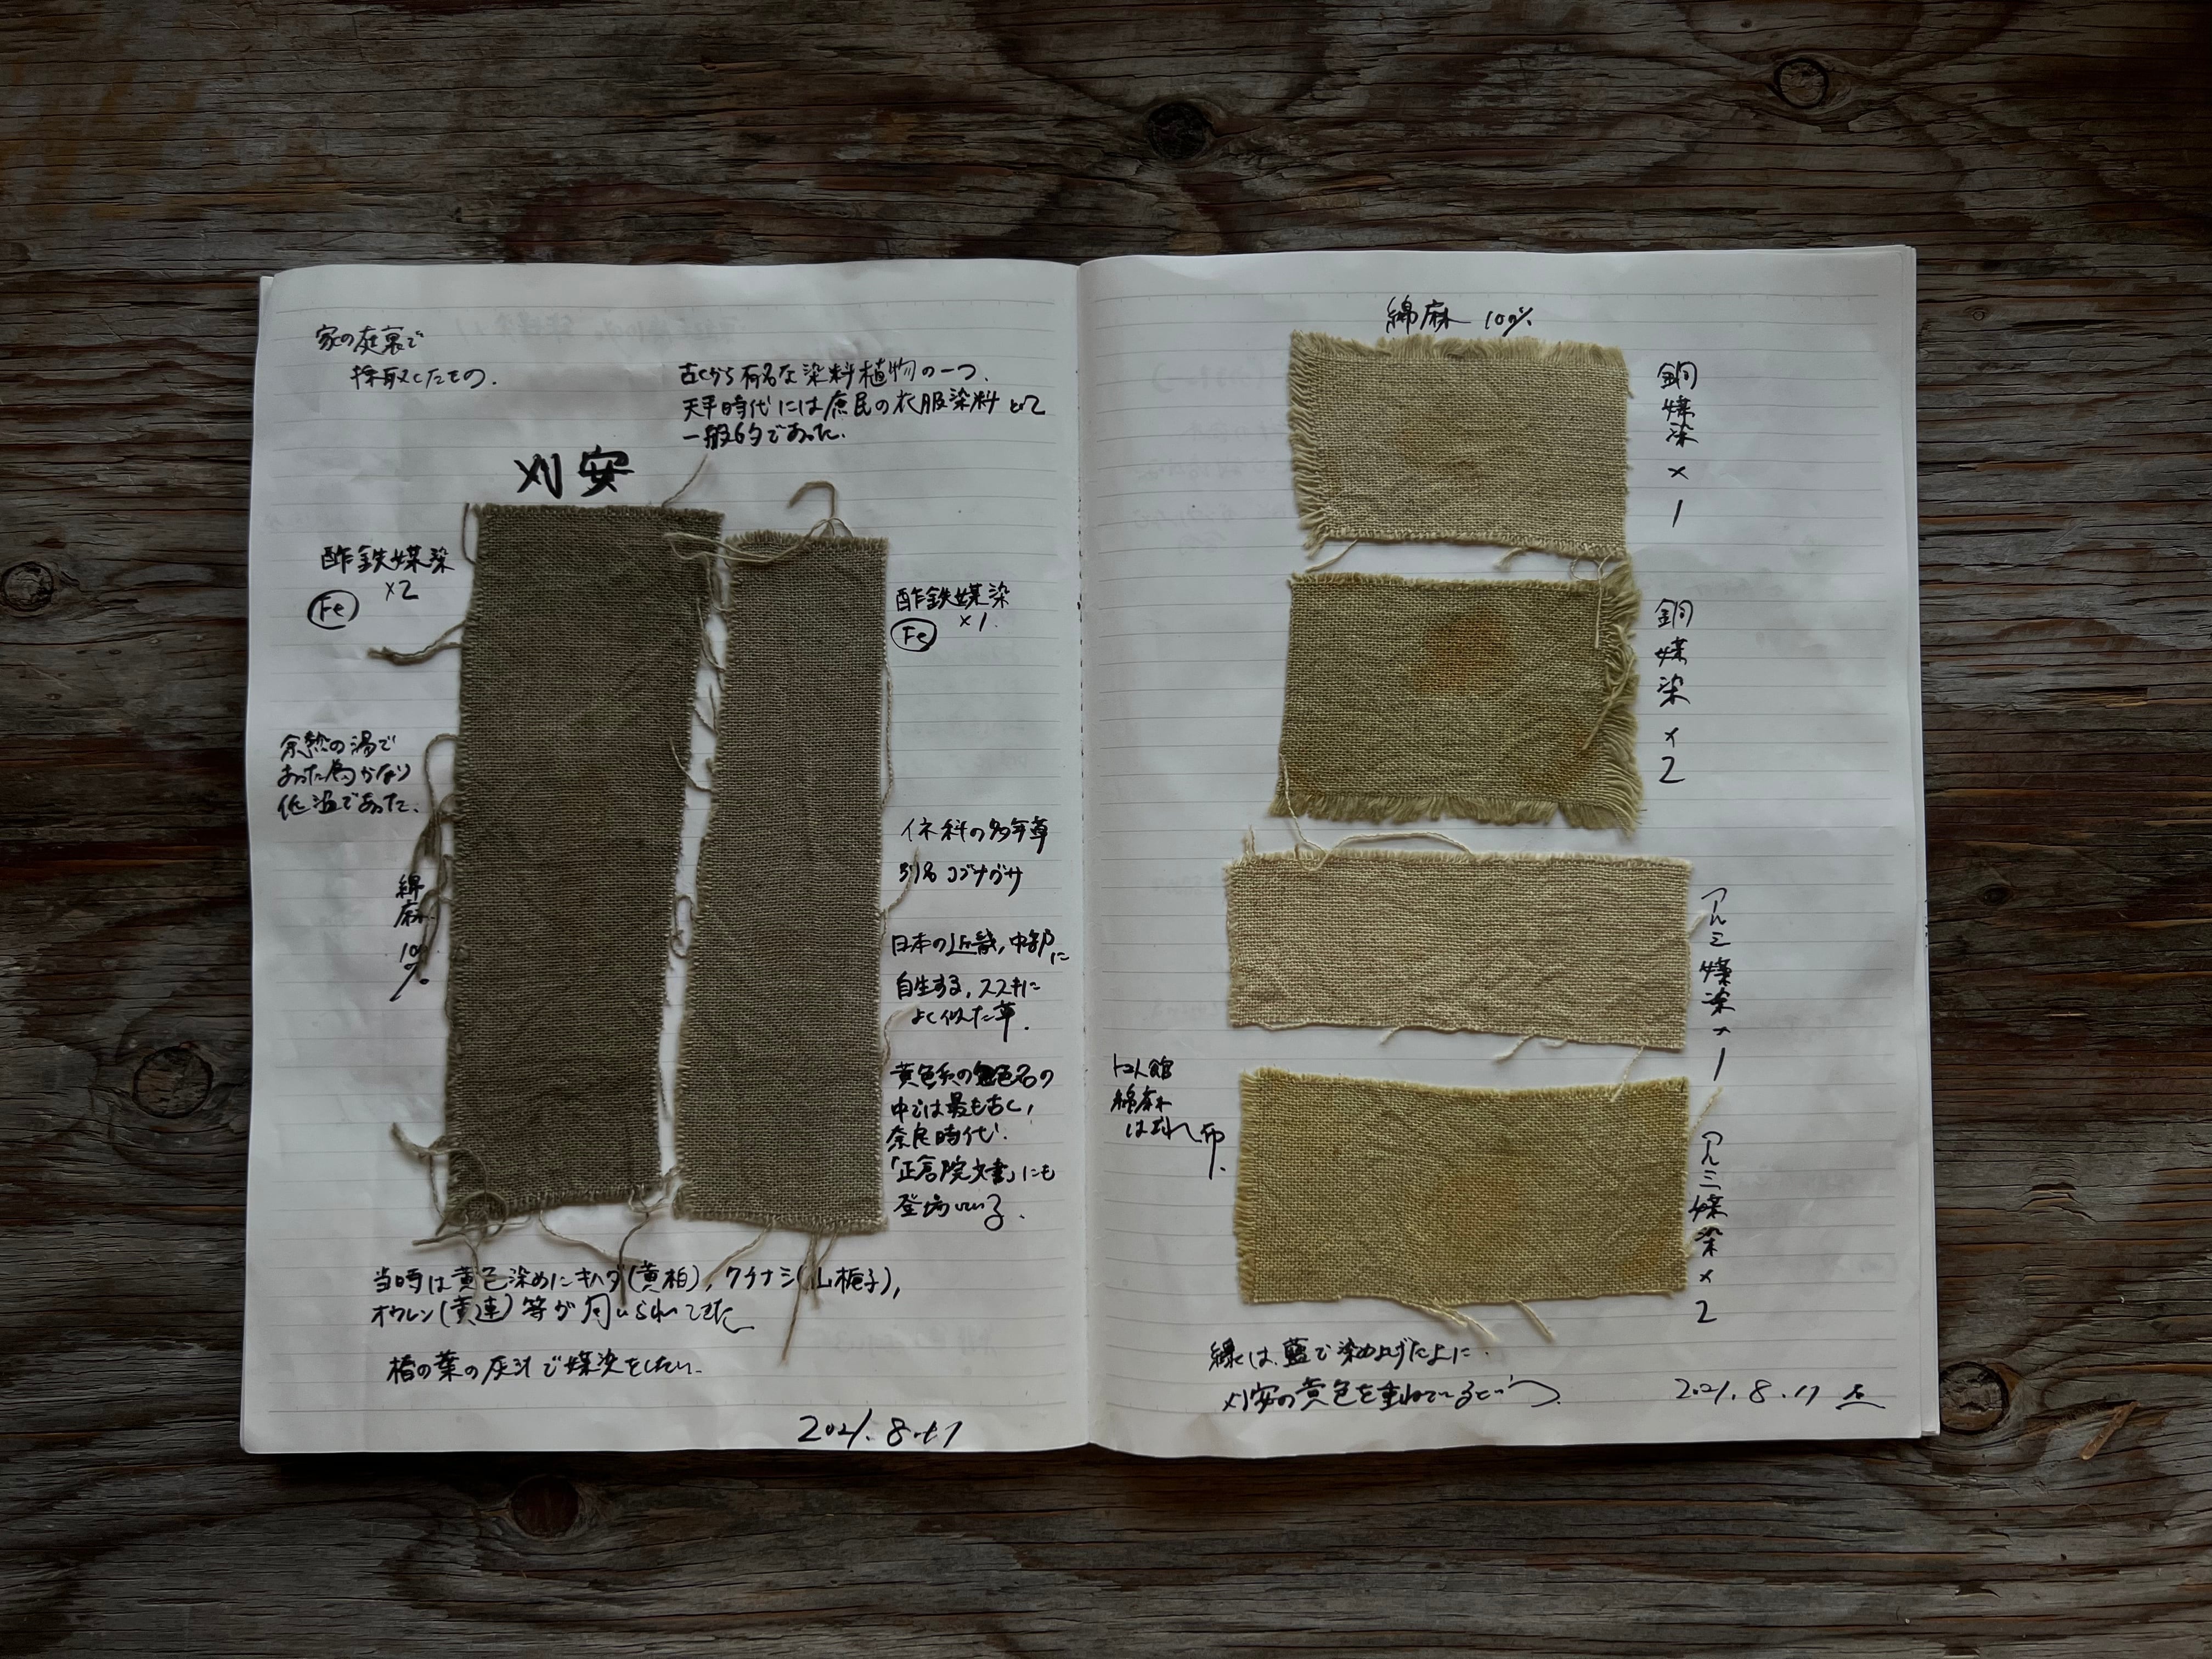 家の庭裏で
採取したもの.
古くから有名な染料植物の一つ.
天平時代には庶民の衣服染料として
一般的であった.
刈安
酢鉄媒染
×2
Fe
酢鉄媒染
×1.
Fe
余熱の湯で
あった為かなり
低温であった.
綿麻100%
イネ科の多年草
別名 コブナグサ
日本の近畿,中部に
自生する,ススキに
よく似た草.
黄色系の色名の
中では最も古く,
奈良時代.
「正倉院文書」にも
登場している.
当時は黄色染めにキハダ(黄柏),クチナシ(山梔子),
オウレン(黄連)等が用いられてきた
椿の葉の灰汁で媒染をしたい.
2021.8.17
綿麻 100%
銅媒染×1
銅媒染×2
アルミ媒染×1
アルミ媒染×2
綿麻
はぎれ布.
緑は、藍で染め上げた上に.
刈安の黄色を重ねているという
2021.8.17